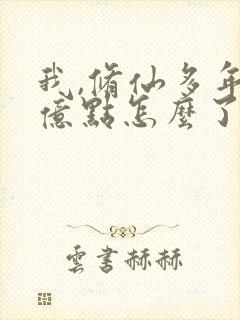 我,脩仙多年
億點怎麼了
雲書赫赫